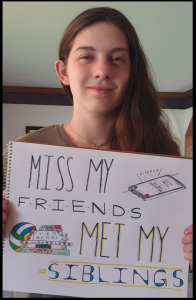 MISS MY
FRIENDS
MET MY
SIBLINGS